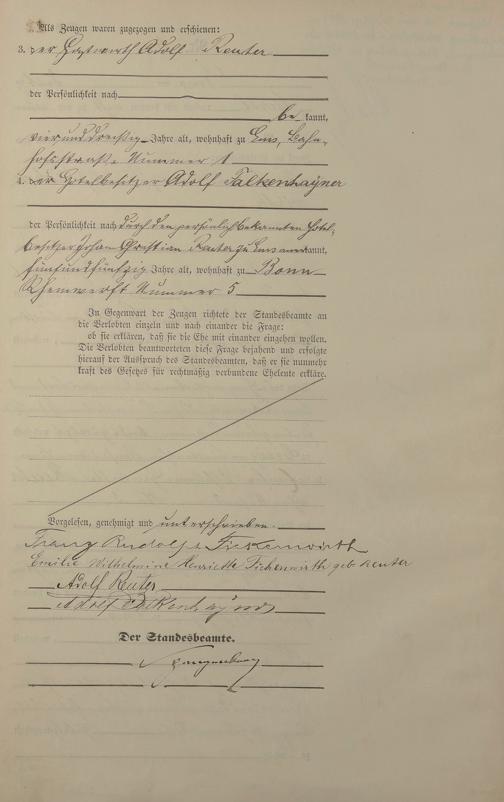 Als Zeugen waren zugezogen und erschienen:
3. der Gastwirth Adolf Reuter
der Persönlichkeit nach
be kannt,
vier und dreißig Jahre alt, wohnhaft zu Ems, Bahn-
hofsstraße Nummer 1
4. der Hotelbesitzer Adolf Falkenhayner
der Persönlichkeit nach durch den persönlich bekannten Hotel-
besitzer Johann Christian Reuter zu Ems anerkannt,
fünfundfünfzig Jahre alt, wohnhaft zu Bonn
Rheinwerft Nummer 5
In Gegenwart der Zeugen richtete der Standesbeamte an
die Verlobten einzeln und nach einander die Frage:
ob sie erklären, daß sie die Ehe mit einander eingehen wollen.
Die Verlobten beantworteten diese Frage bejahend und erfolgte
hierauf der Ausspruch des Standesbeamten, daß er sie nunmehr
kraft des Gesetzes für rechtmäßig verbundene Eheleute erkläre.
Vorgelesen, genehmigt und unterschrieben.
Franz Rudolf Fickenwirth
Emilie Wilhelmine Henriette Fickenwirth geb Reuter
Adolf Reuter
Adolf Falkenhayner
Der Standesbeamte.
Spangenberg